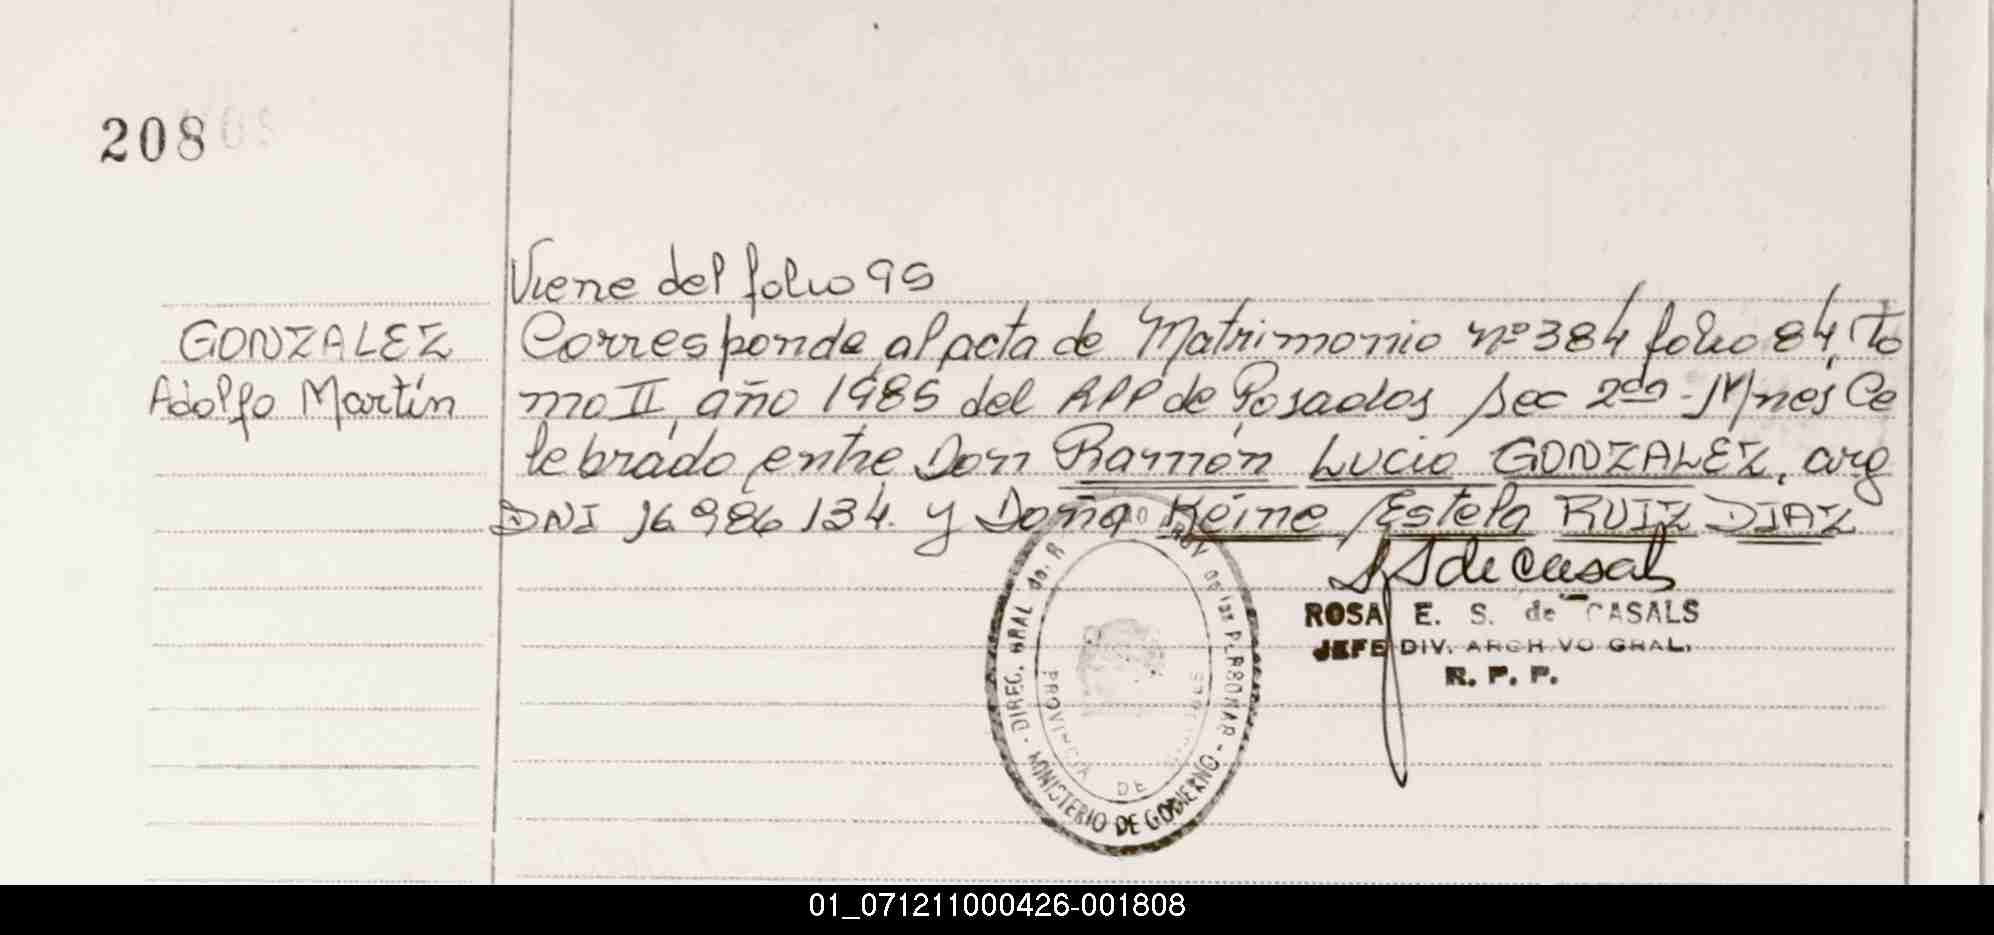 208
Viene del folio 95
GONZALEZ
Adolfo Martín
Corresponde al acta de Matrimonio nº 384 folio 84, To
mo II, año 1985 del RPP de Posadas Sec 2da - Mnes Ce
lebrado entre Don Ramón Lucio GONZALEZ, arg
DNI 16.986.134. y Doña Keine Estela RUIZ DIAZ
S de Casals
ROSA E. S. de CASALS
JEFE DIV. ARCHIVO GRAL.
R. P. P.
DIREC. GRAL de las PERSONAS
MINISTERIO DE GOBIERNO
PROVINCIA DE
01_071211000426-001808